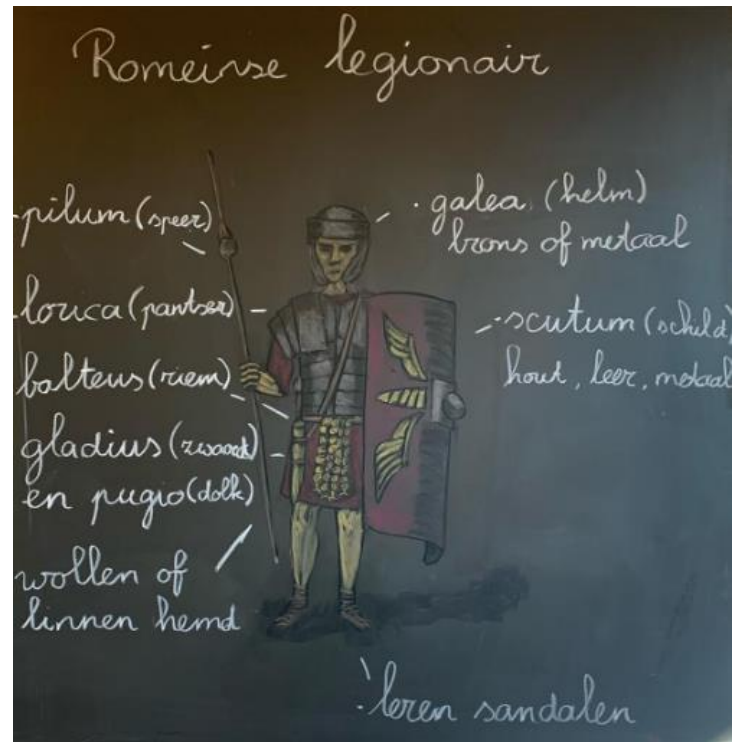 Romeinse legionair
- pilum (speer)
- lorica (pantser)
balteus (riem)
gladius (zwaard)
en pugio (dolk)
wollen of
linnen hemd
· galea (helm)
brons of metaal
- scutum (schild)
hout, leer, metaal
· leren sandalen